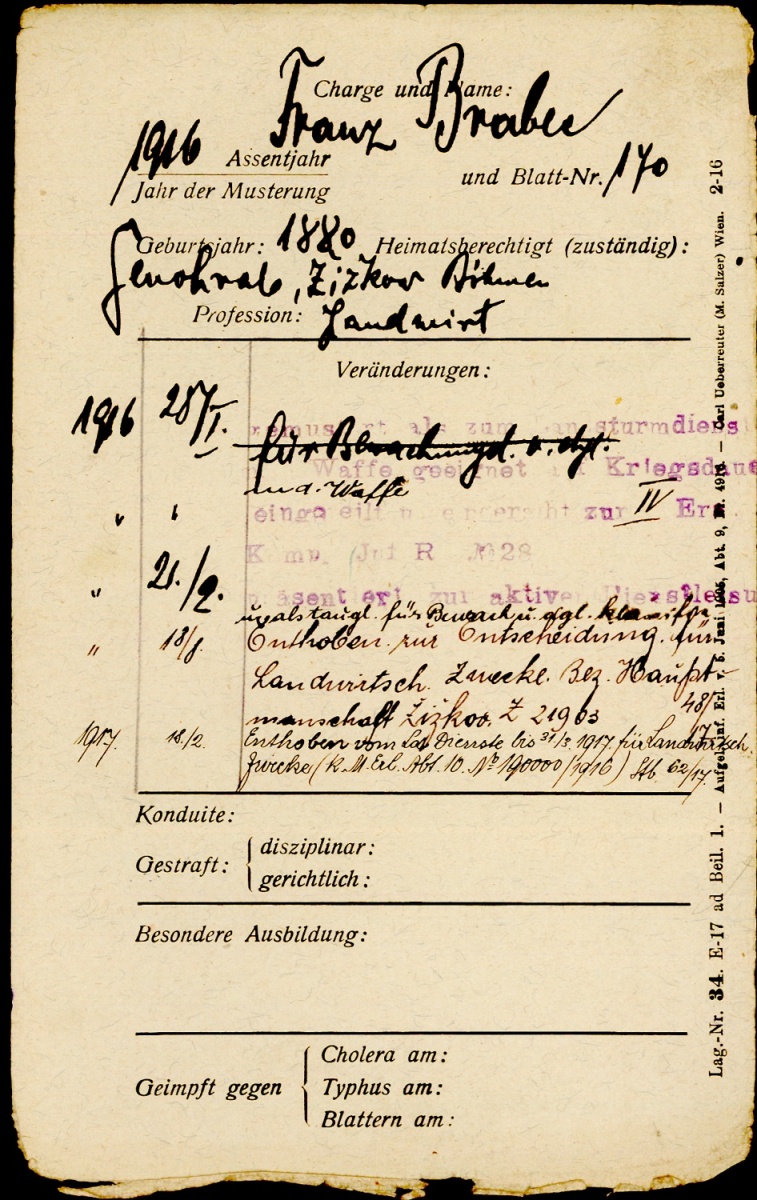 Charge und Name:
Franz Brabec
1916 Assentjahr
Jahr der Musterung
und Blatt-Nr. 170
Geburtsjahr: 1880 Heimatsberechtigt (zuständig):
Žižkov Böhmen
Profession: Landwirt
Veränderungen:
1916 28/I. gemustert als zum Landsturmdiens
für Bewachungsd. u. dgl.
Waffe geeignet auf Kriegsdaue
m d. Waffe
" " IV
zur Ers.
Komp. Inf R No 28
" 21./2.
präsentiert zur aktiven Dienstleistu
u. als taugl. für Bewach u. dgl. klassifiz.
" 18/8. Enthoben zur Entscheidung für
Landwirtsch. Zwecke. Bez. Haupt-
manschaft Žižkov. Z 21963
48/17
1917. 18./2. Enthoben vom Lst Dienste bis 31/3. 1917 für Landwirtsch.
Zwecke (K.M.Erl. Abt. 10. No 190000/1916) Stb 62/17.
Konduite:
Gestraft: disziplinar:
gerichtlich:
Besondere Ausbildung:
Geimpft gegen Cholera am:
Typhus am:
Blattern am:
Lag.-Nr. 34. E-17 ad Beil. 1. — Aufgel. inf. Erl. v. 5. Juni Abt. 9, — Carl Ueberreuter (M. Salzer) Wien. 2-16